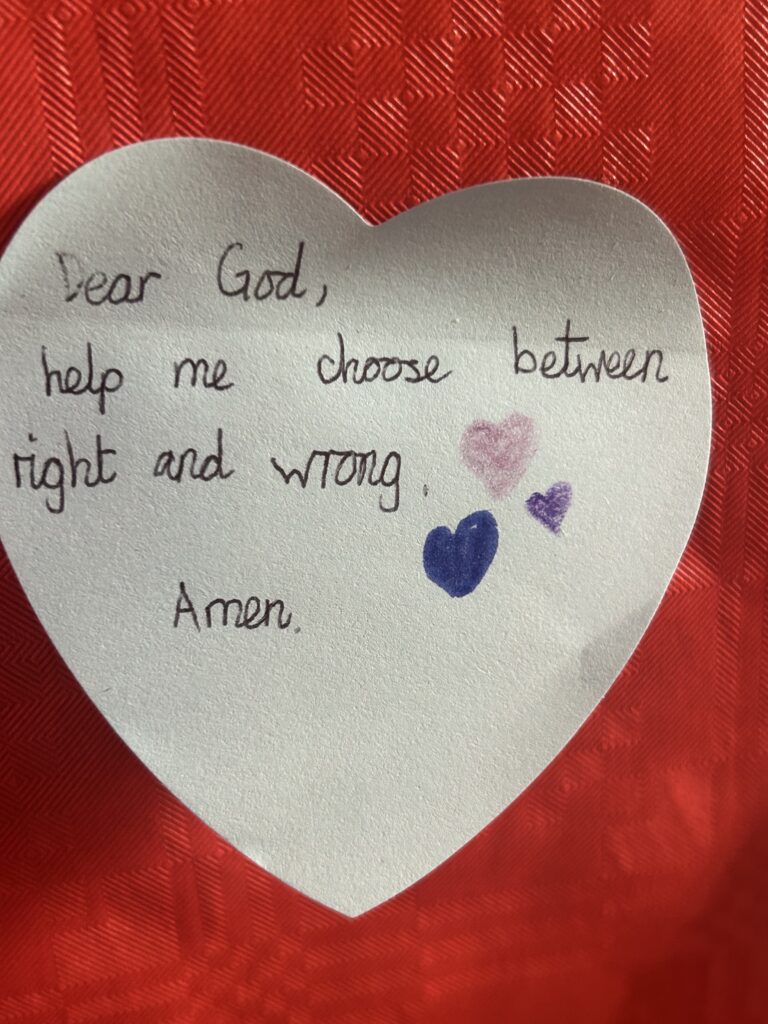 Dear God,
help me choose between
right and wrong.
Amen.